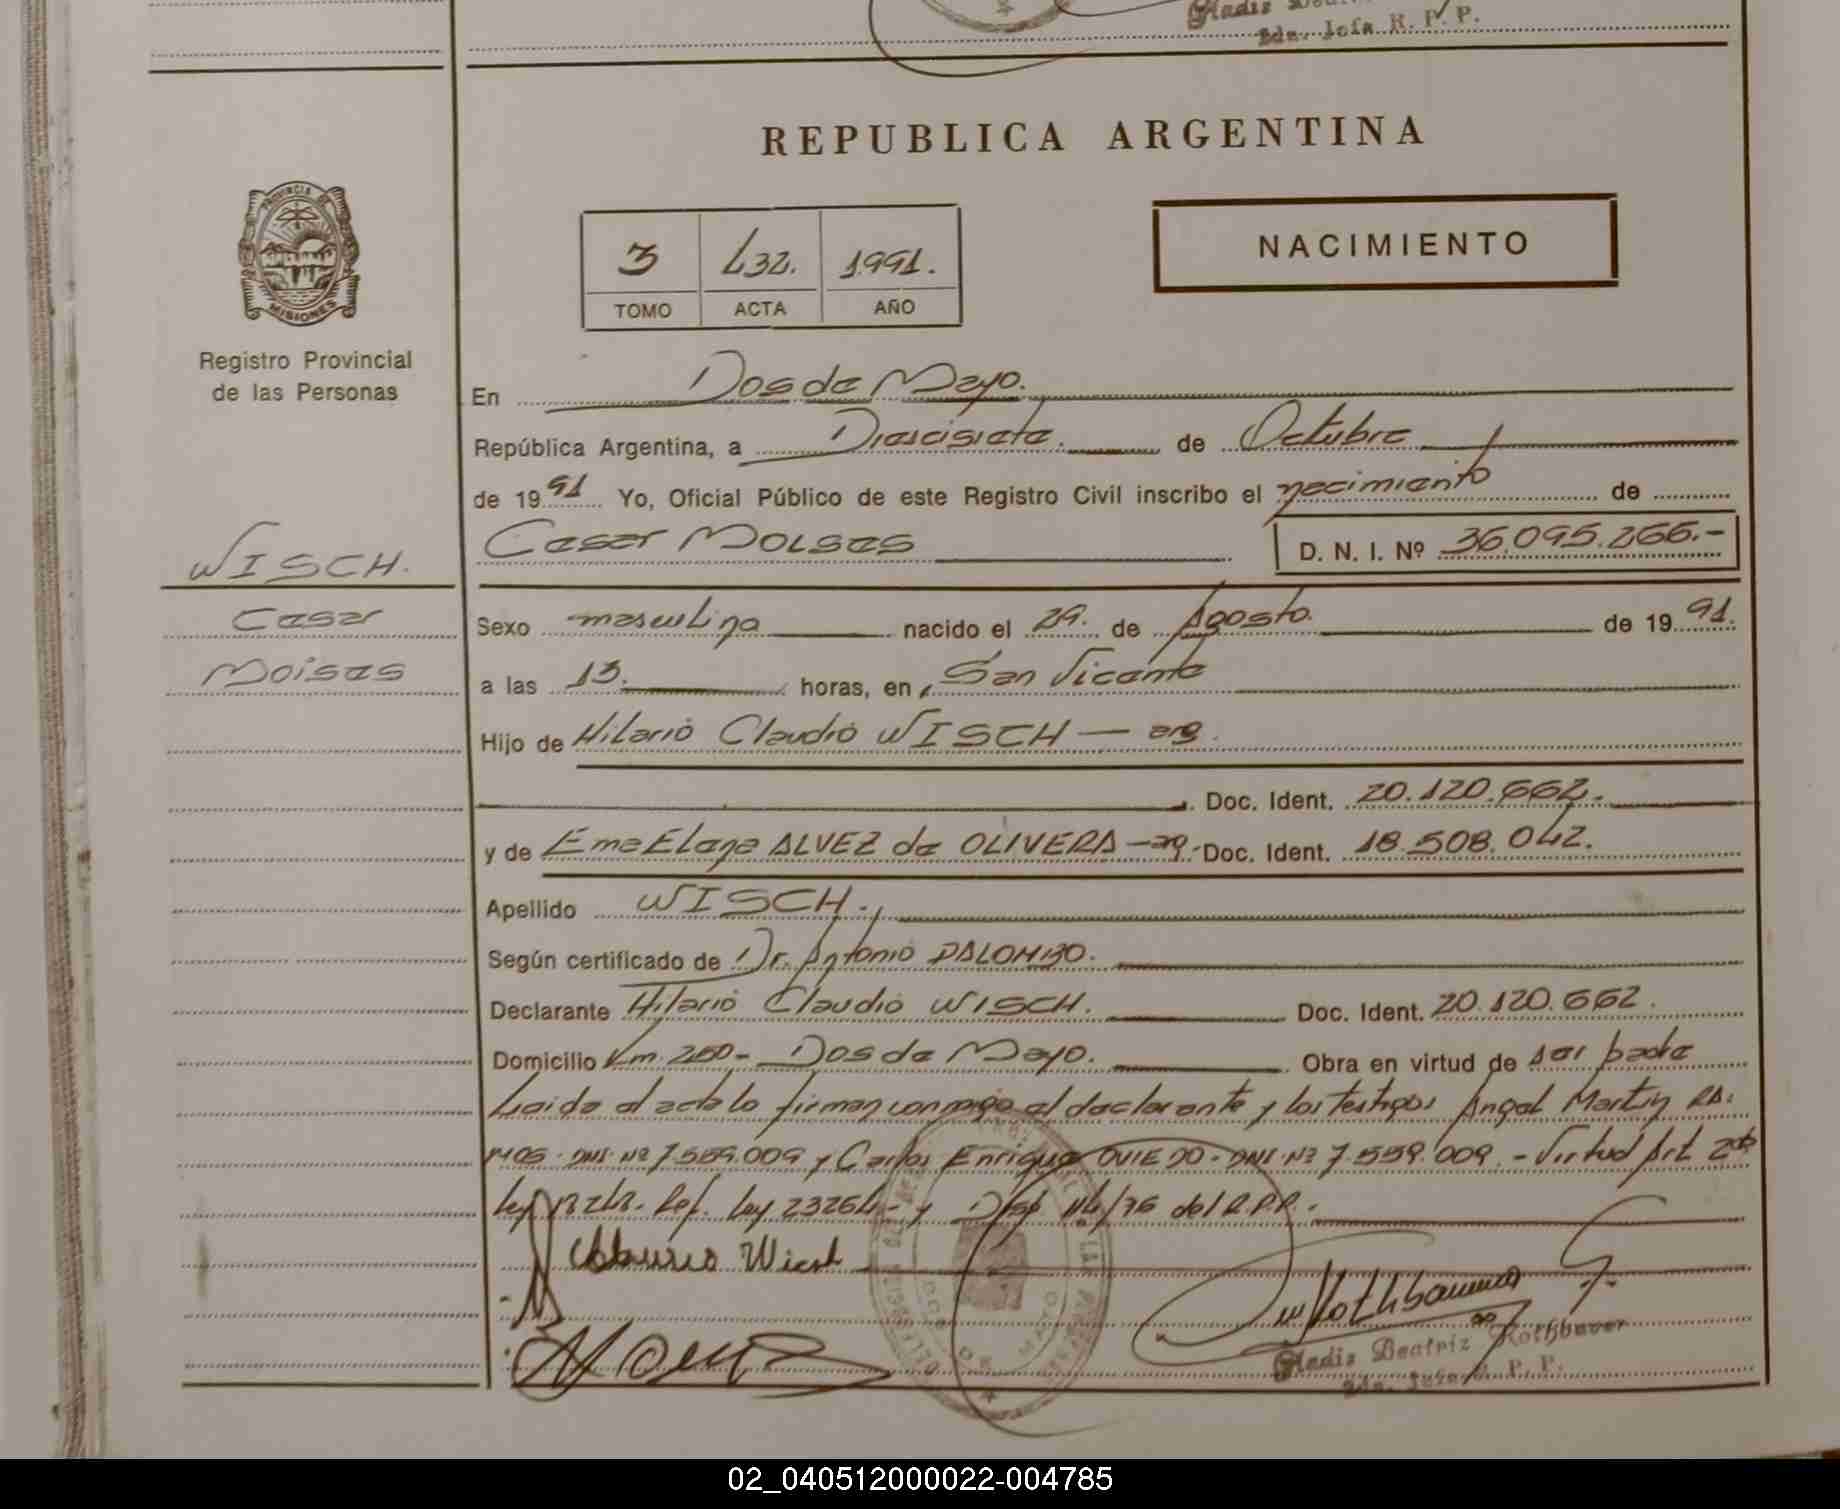 Gladis
2da. Jefa R. P. P.
REPUBLICA ARGENTINA
PROVINCIA DE
MISIONES
3 432. 1991.
TOMO ACTA AÑO
NACIMIENTO
Registro Provincial
de las Personas
En Dos de Mayo.
República Argentina, a Diescisiete. de Octubre
de 19 91 Yo, Oficial Público de este Registro Civil inscribo el nacimiento de
WISCH.
Cesar Moises D. N. I. Nº 36.095.266.-
Cesar
Moises
Sexo masculino nacido el 29. de Agosto. de 19 91.
a las 13. horas, en San Vicente
Hijo de Hilario Claudio WISCH — arg.
Doc. Ident. 20.120.662.
y de Ema Elena ALVEZ de OLIVERA - arg.- Doc. Ident. 18.508.042.
Apellido WISCH.
Según certificado de Dr. Antonio PALOMBO.
Declarante Hilario Claudio WISCH. Doc. Ident. 20.120.662.
Domicilio Km. 250- Dos de Mayo. Obra en virtud de ser padre
Leida el acta lo firman conmigo el declarante y los testigos Angel Martin RA:
MOS- DNI. Nº 7.559.009 y Carlos Enrique OVIEDO- DNI. Nº 7.559.009.- Virtud Art. 2do
Ley 18248. Ref. Ley 23264- y Disp 114/76 del R.P.P.-
Wisch
DOS DE MAYO
Rothbauer
Gladis Beatriz Rothbauer
2da. Jefa R. P. P.
02_040512000022-004785